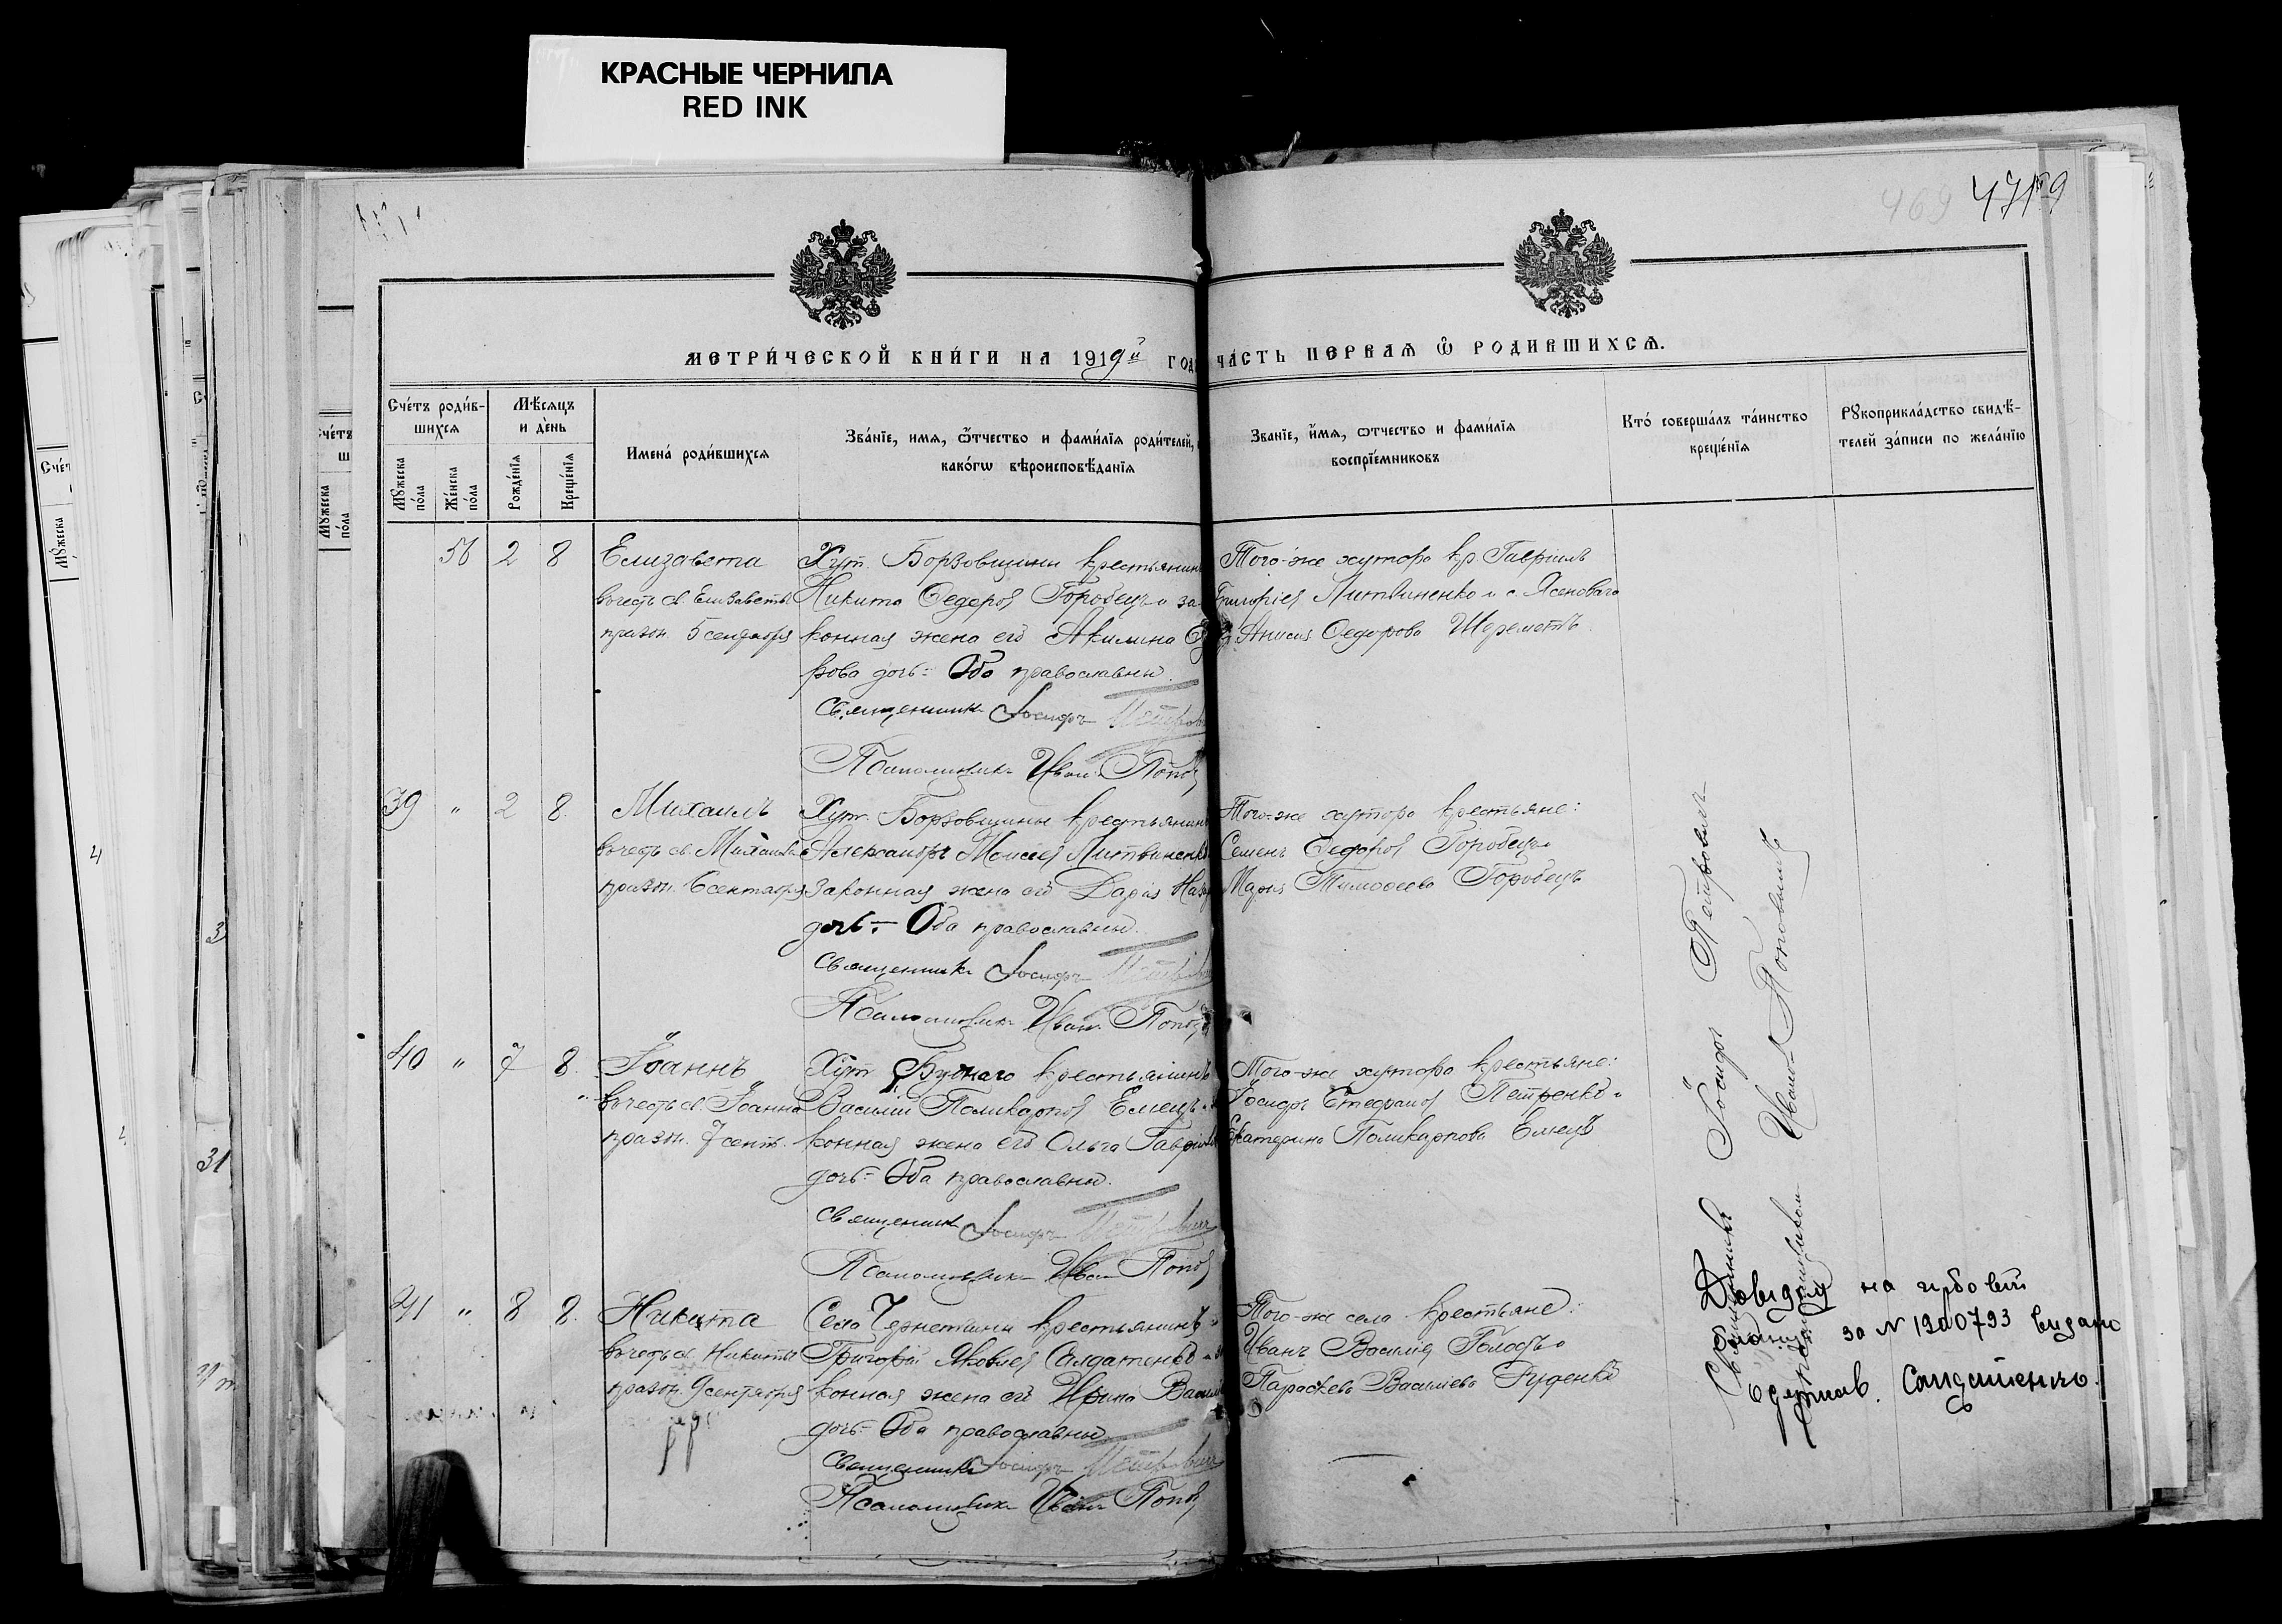 КРАСНЫЕ ЧЕРНИЛА
RED INK
469 471
МЕТРИ́ЧЕСКОЙ КНИ́ГИ НА 1919й ГОД
ЧА́СТЬ ПЕРВАЯ Ѿ РОДИВШИХСЯ.
Сче́тъ роди́в-
шихся
Мѣ́сяцъ
и де́нь
Мꙋжеска
по́ла
Же́нска
по́ла
Рожде́нїя
Креще́нїя
Имена́ роди́вшихся
Зва́нїе, имя, ѻ́тчество и фами́лїя роди́телей,
како́гѡ вѣроисповѣ́данїя
Званїе, и́мя, ѻтчество и фами́лїя
воспрїе́мниковъ
Кто́ соверша́лъ та́инство
креще́нїя
Рꙋкоприкла́дство свидѣ́-
телей за́писи по жела́нїю
56 2 8 Елизавета
вчесть св. Елизаветы
празн. 5 сентября
Хут. Борзовщины крестьянинъ
Никита Федоровъ Горобецъ и за-
конная жена его Акилина
рова дочь - Оба православны.
Священникъ Іосифъ
Псаломщикъ Иванъ Попов
Того-же хутора кр. Гавріилъ
Григоріев Литвиненко и с. Ясеноваго
Анисія Федорова Шереметъ
39 " 2 8. Михаилъ
вчесть св. Михаила
празн. 6 сентября
Хут. Борзовщины крестьянинъ
Александръ Моисеев Литвиненко
законная жена его Дарія
дочь - Оба православны.
Священникъ Іосифъ
Псаломщикъ Иванъ Попов
Того-же хутора крестьяне:
Семенъ Федоров Горобецъ и
Марія Тимофеева Горобецъ
40 " 7 8. Іоаннъ
вчесть св. Іоанна
празн. 7 сент.
Хут. крестьянинъ
Василій Поликарпов Емецъ и
конная жена его Ольга Гаврилова
дочь - Оба православны.
Священникъ Іосифъ
Псаломщикъ Иванъ Попов
Того-же хутора крестьяне:
Іосифъ Стефанов Петренко и
Екатерина Поликарпова Емецъ
41 " 8 8. Никита
вчесть св. Никиты
празн. 9 сентября
Села Чернетчины крестьянинъ
Григорій Яковлев Салдатенко и
конная жена его Ирина
дочь - Оба православны
Священникъ Іосифъ
Псаломщикъ Иванъ Попов
Того-же села крестьяне:
Иванъ Василіев Голобъ и
Параскева Василиева Руденко
Священникъ Іосифъ Петровичъ
Псаломщикъ Иванъ Поповъ
на
за N 1900793 видано